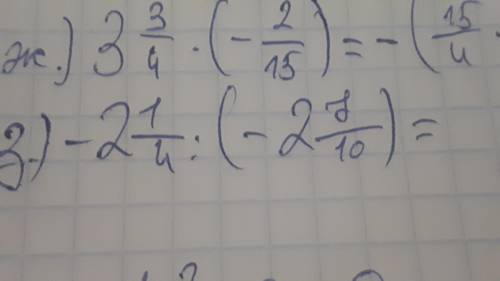 ж.) 3 3/4 · (- 2/15) = - (15/4 ·
з.) - 2 1/4 : (- 2 7/10) =